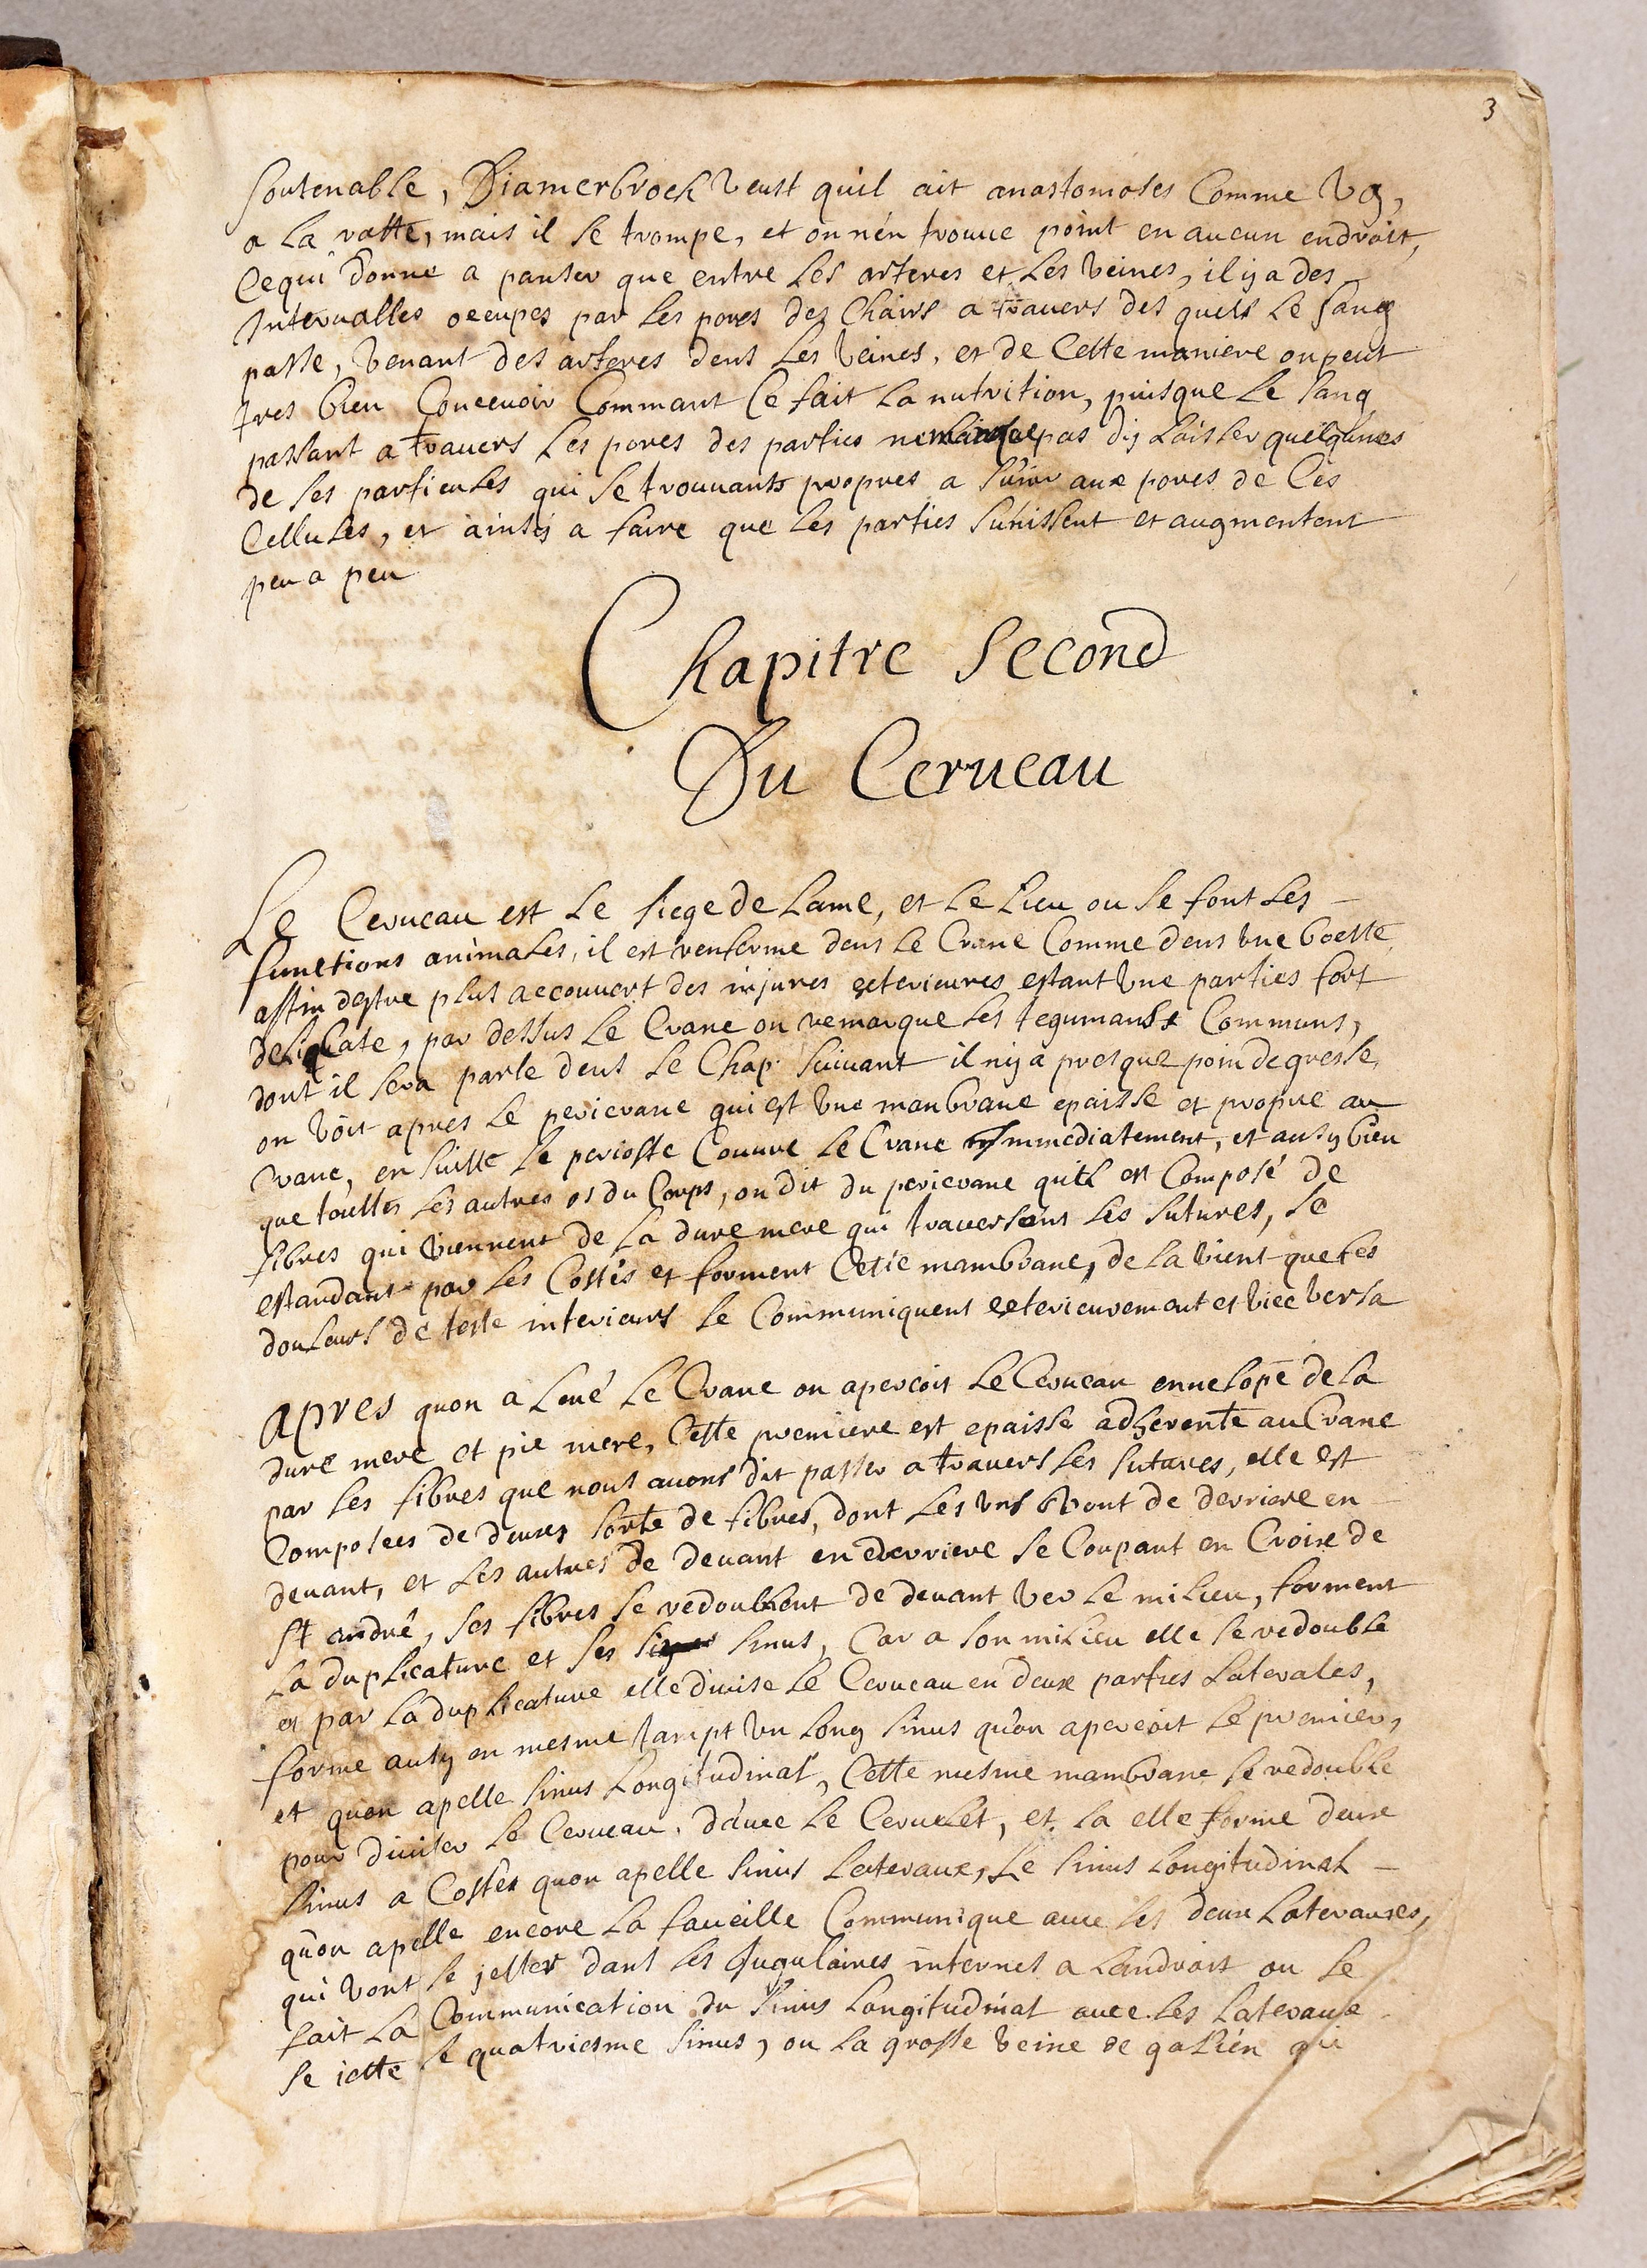 3
soutenable, Diamerbroek veust quil ait anastomoses Comme Vg,
a la ratte, mais il se trompe, et on nén trouue point en aucun endroit,
Cequi donne a panser que entre les arteres et les veines, il y a des
Interualles occupes par les pores des Chairs a trauers des quels le sang
passe, venant des arteres dens les veines, et de Cette maniere on peut
tres bien Conceuoir Commant Ce fait la nutrition, puisque le sang
passant a trauers les pores des parties ne manque pas dy laisser quelqunes
de ses particules qui se trouuants propres a sunir aux pores de Ces
Cellules, et ainsy a faire que les parties sunissent et augmentent
peu a peu
Chapitre Second
Du Cerueau
Le Cerueau est le siege de lame, et le lieu ou se font les
functions animales, il est renferme dens le Crane Comme dens vne boette
affin destre plus a couuert des injures exterieures estant vne parties fort
delicate, par dessus le Crane on remarque les tegumants Communs,
dont il sera parle dens le Chap. suiuant il ny a presque poin de gresse,
on voit apres le pericrane qui est vne manbrane epaisse et propre au
Crane, en suitte le perioste Couure le Crane immediatement, et ausy bien
que touttes les autres os du Corps, on dit du pericrane quil est Composé de
fibres qui viennent de la dure mere qui trauersant les sutures, se
estandant par les Costés et forment Cette mambrane, de la vient que les
douleurs de teste interieurs se Communiquent exterieurement et vice versa
Apres quon a leué le Crane on apercoit le Cerueau enuelopé de la
dure mere et pie mere, Cette premiere est epaisse adherente au Crane
par les fibres que nous auons dit passer a trauers les sutures, elle est
Composees de deuxes sorte de fibres, dont les vns vont de derriere en
deuant, et les autres de deuant en derriere se Coupant en Croix de
st andré, ses fibres se redoublent de deuant ver le milieu, forment
la duplicature et ses sinus, Car a son milieu elle se redouble
et par la duplicature elle diuise le Cerueau en deux parties laterales,
forme ausy en mesme tampt vn long sinus quon apercoit le premier,
et quon apelle sinus Longitudinal, Cette mesme mambrane se redouble
pour diuiser le Cerueau, dauec le Ceruelet, et la elle forme deux
sinus a Costés quon apelle sinus lateraux, le sinus longitudinal
quon apelle encore la faucille Communique auec les deux Laterauxes,
qui vont se jetter dans les Jugulaires internes a landroit ou se
fait la Communication du sinus Longitudinal auec les lateraux
se iette le quatriesme sinus, ou la grosse veine de galien qui